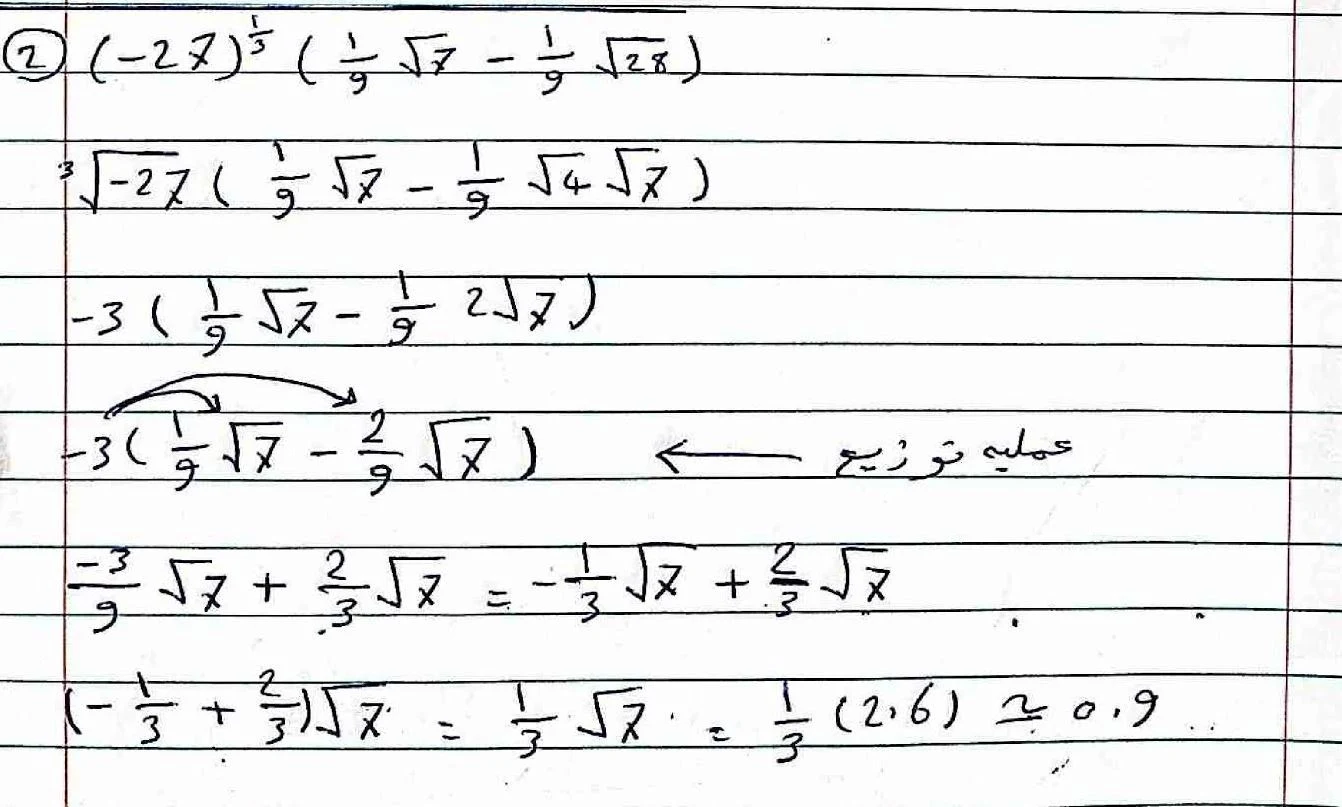 ② (-27)^{1/3} ( 1/9 √7 - 1/9 √28 )
³√-27 ( 1/9 √7 - 1/9 √4 √7 )
-3 ( 1/9 √7 - 1/9 2√7 )
-3 ( 1/9 √7 - 2/9 √7 ) ← عمليه توزيع
-3/9 √7 + 2/3 √7 = -1/3 √7 + 2/3 √7
(-1/3 + 2/3)√7 = 1/3 √7 = 1/3 (2.6) ≃ 0.9